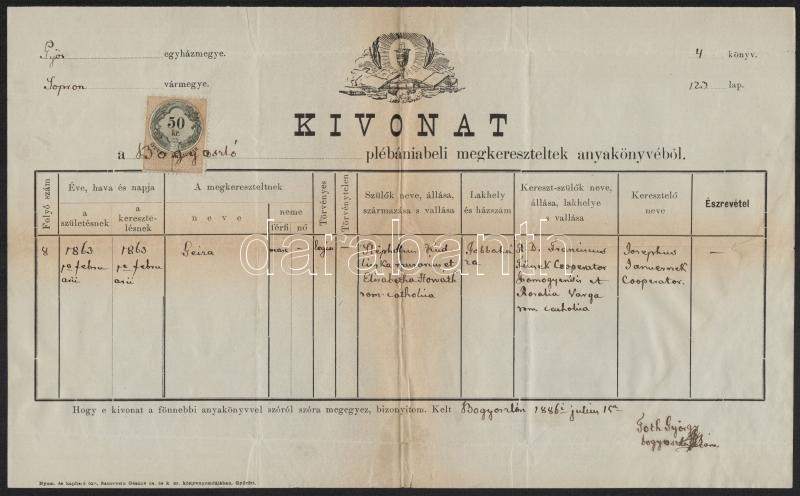 Győr egyházmegye.
4 könyv.
Sopron vármegye.
123 lap.
50
kr.
KIVONAT
a Bogyoszló plébániabeli megkereszteltek anyakönyvéből.
Folyó szám
Éve, hava és napja
a születésnek
a keresztelésnek
A megkereszteltnek
neve
neme
férfi nő
Törvényes
Törvénytelen
Szülők neve, állása,
származása s vallása
Lakhely
és házszám
Kereszt-szülők neve,
állása, lakhelye
s vallása
Keresztelő
neve
Észrevétel
8
1863
1a febru
arii
1863
1a febru
arii
Geiza
masc
—
—
Stephanus
et
Elisabetha Horvath
rom catholica
D. Franciscus
Cooperator
et
Rosalia Varga
rom catholica
Josephus
Cooperator.
—
Hogy e kivonat a fönnebbi anyakönyvvel szóról szóra megegyez, bizonyítom. Kelt Bogyoszlón 1886 julius
Toth György
darabanth